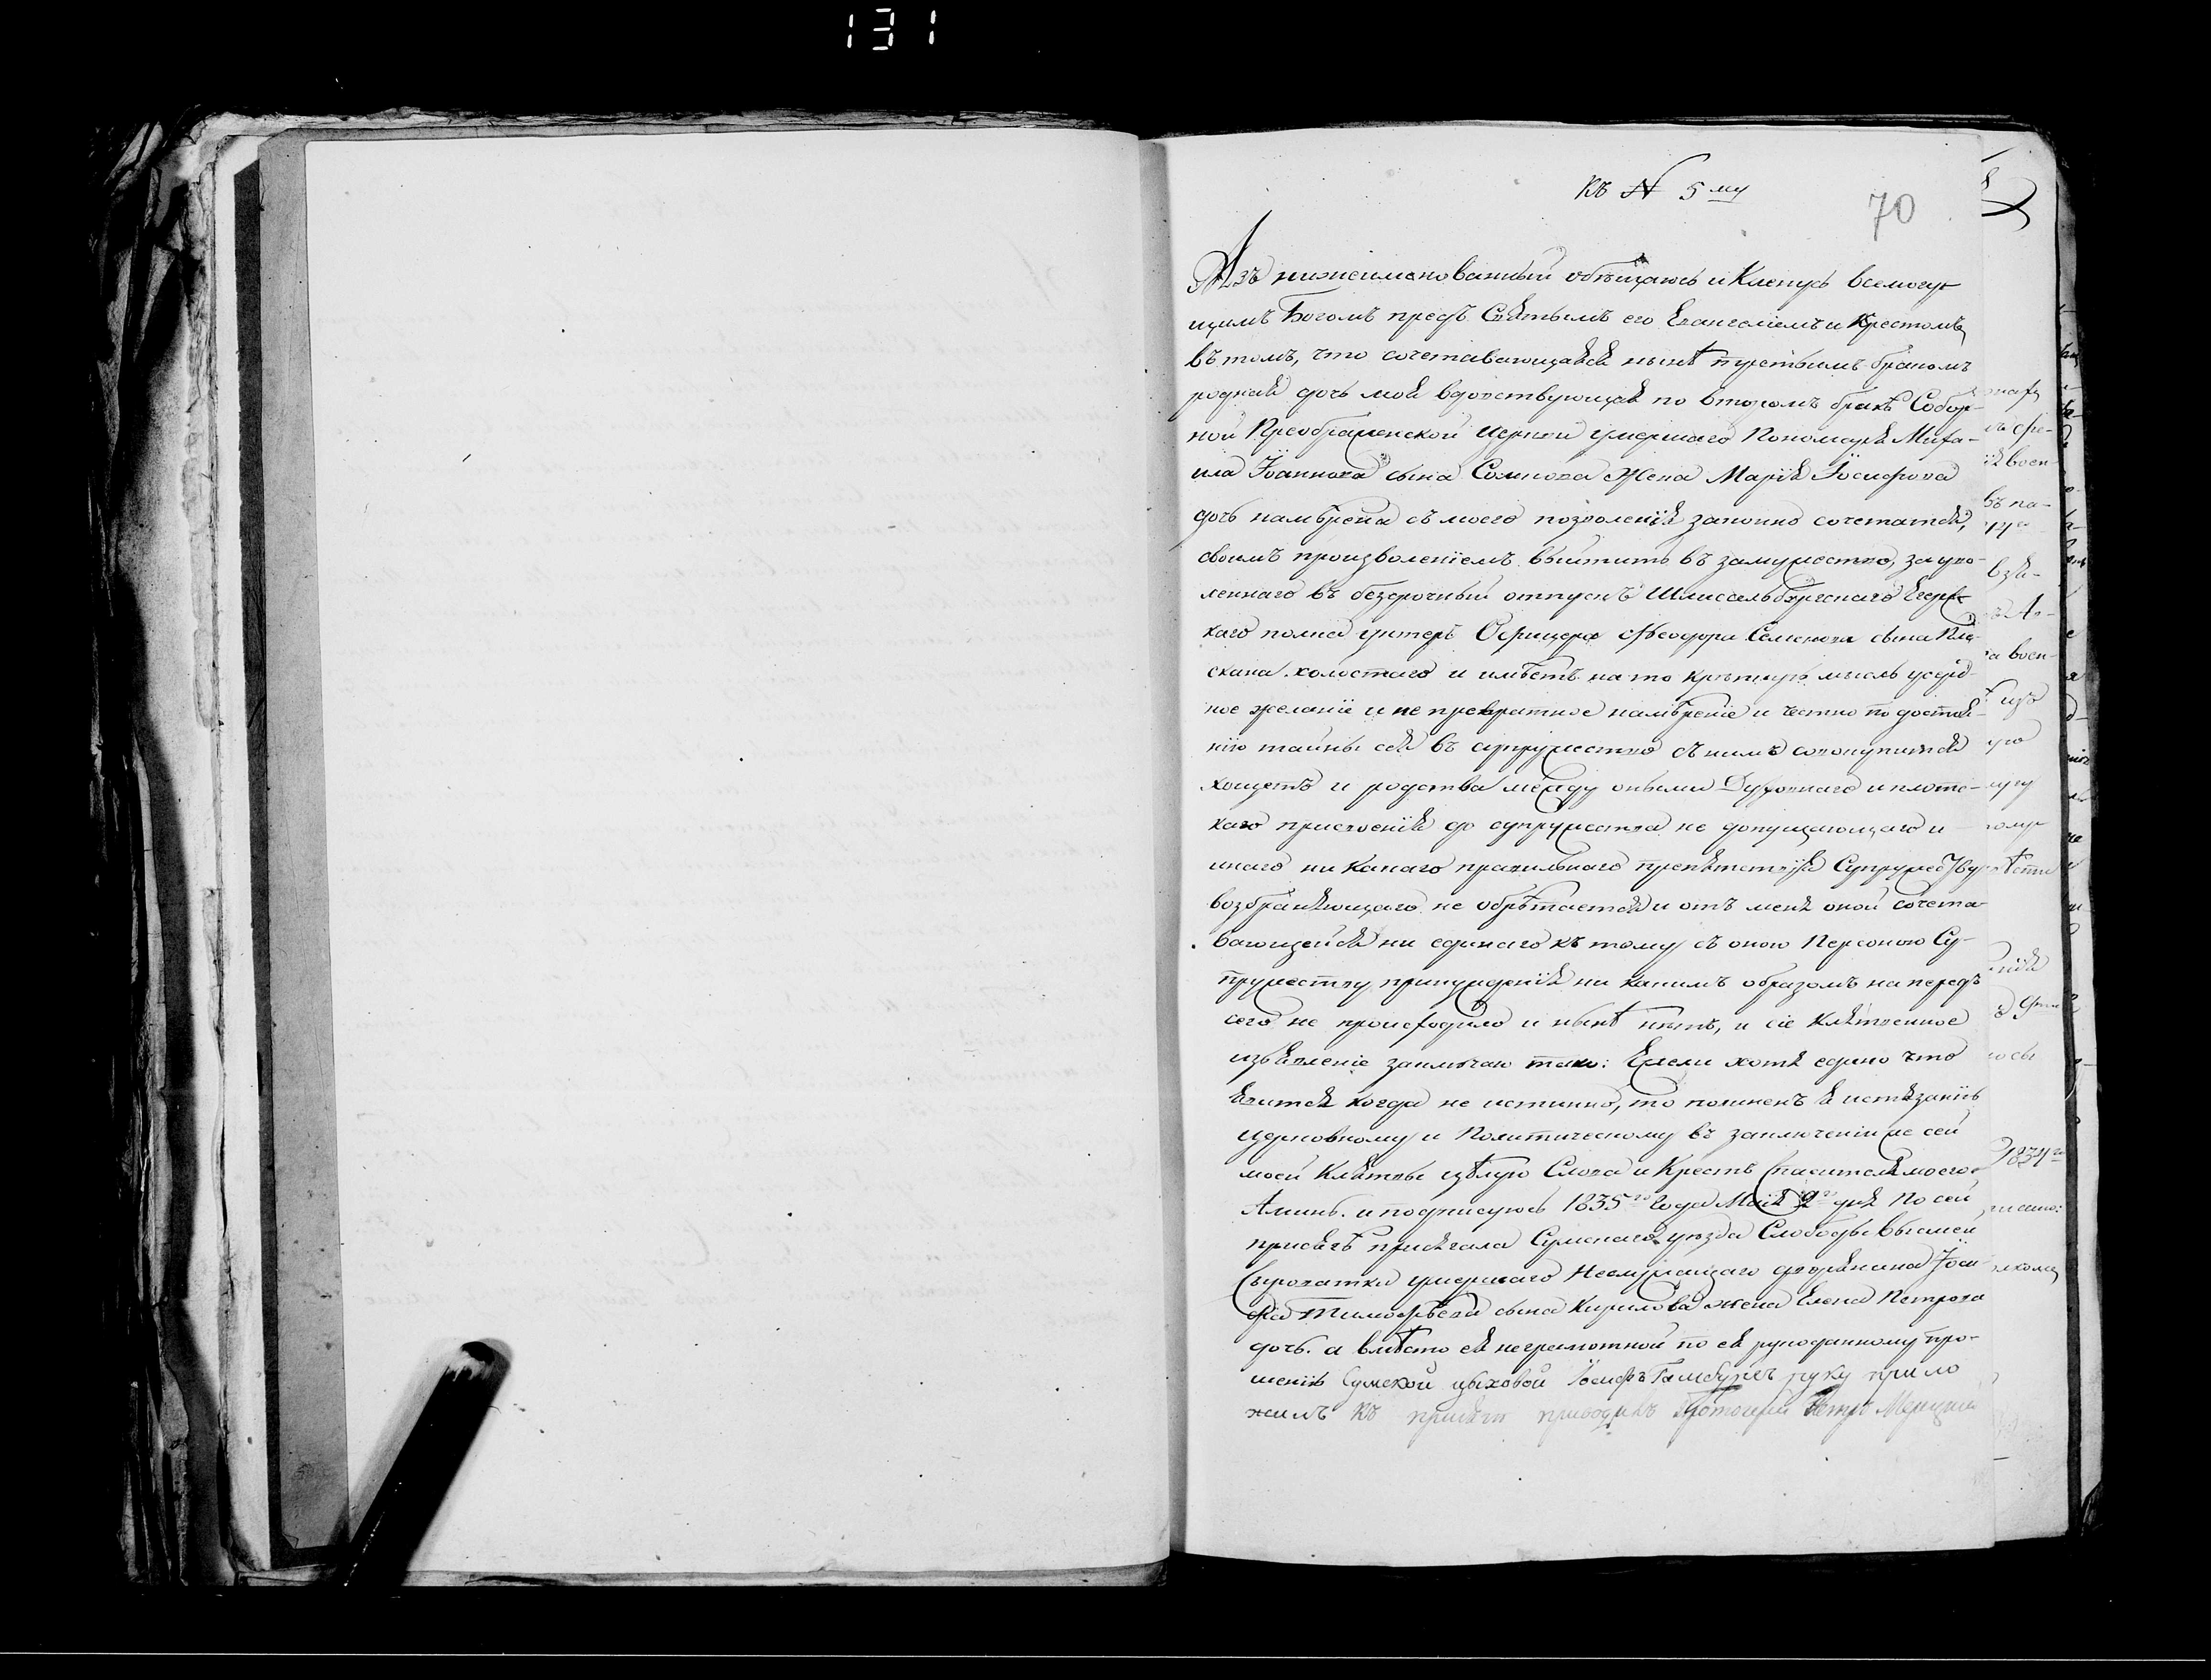 131
Къ № 5му
70
Азъ нижеименованный обѣщаюсь и Кленусь всемогу-
щимъ Богомъ предъ Святымъ его Евангелїемъ и Крестомъ
въ томъ, что сочетавающаяся нынѣ третьимъ бракомъ
родная дочь моя вдовствующая по второмъ бракѣ Собор-
ной Преображенской Церкви умершаго Пономаря Миха-
ила Іоаннова сына жена Марія Іосифова
дочь намѣрена съ моего позволенія законно сочетатся,
своимъ произволенїемъ выйтить въ замужество, за уво-
леннаго въ безсрочный отпускъ Шлиссельбургскаго Егерс
каго полка унтеръ Офицера Ѳеодора Семенова сына Пла-
скина холостаго и имѣетъ на то крѣпкую мысль усерд-
ное желанїе и не превратное намѣренїе и честно по достоя-
нію тайны сея въ супружество съ нимъ совокупится
хощетъ и родства между оными Духовнаго и плотс-
каго присвоенія до супружества не допущающаго и
инаго ни какаго правильнаго препятствїя Супружеству
возбраняющаго не обрѣтается и отъ меня оной сочета-
вающейся ни единаго къ тому съ оною Персоною Су-
пружеству принужденія ни какимъ образомъ на передъ
сего не происходило и нынѣ нѣтъ, и сїе Клятвенное
изъявленїе заключаю тако: Ежели хотя едино что
явится когда не истинно, то повиненъ я истязанїю
церковному и Политическому въ заключенїи же сей
моей Клятвы цѣлую Слова и Крестъ Спасителя моего,
Аминь. и подписуюсь 1835го года Маія 9го дня По сей
присягѣ присягала Сумскаго уѣзда Слободы Вышей
Сыроватки умершаго Неслужащаго дворянина Іоси-
фа Тимоѳѣева сына Кирилова жена Елена Петрова
дочь. а вмѣсто ея неграмотной по ея рукоданному про-
шенію Сумской цѣховой Іосифъ руку прило
жилъ Къ присягѣ приводилъ Протоіерей Петръ